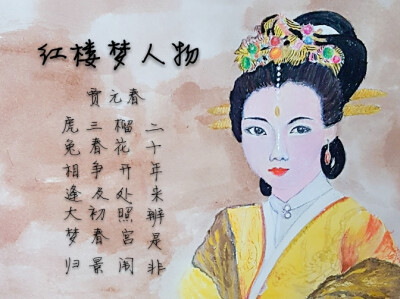 红楼梦人物
贾元春
二十年来辨是非
榴花开处照宫闱
三春争及初春景
虎兔相逢大梦归